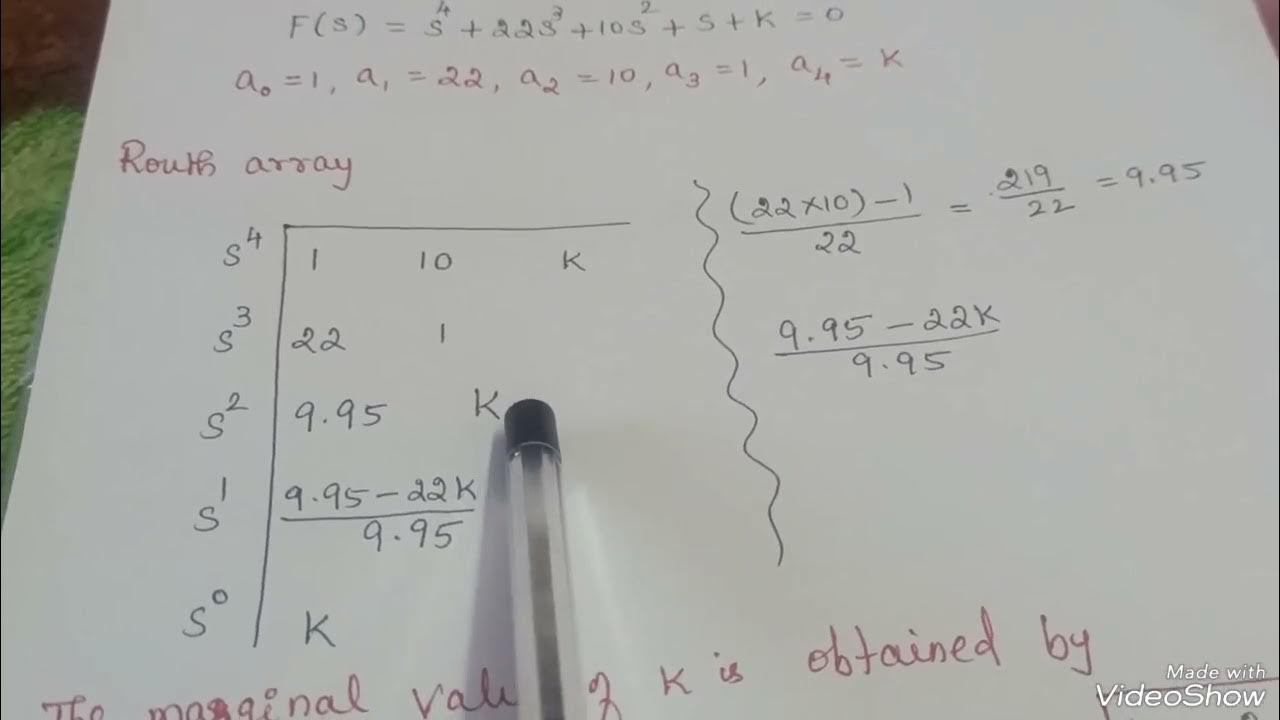 F(s) = s⁴ + 22s³ + 10s² + s + K = 0
a₀ = 1, a₁ = 22, a₂ = 10, a₃ = 1, a₄ = K
Routh array
s⁴ 1 10 K
s³ 22 1
s² 9.95 K
s¹ (9.95 - 22K)/9.95
s⁰ K
((22×10) - 1)/22 = 219/22 = 9.95
(9.95 - 22K)/9.95
The marginal of K is obtained by
Made with
VideoShow